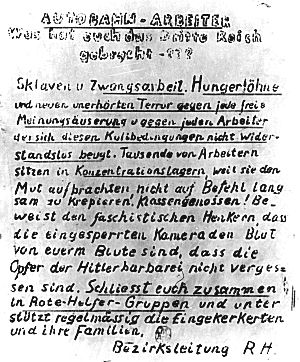 AUTOBAHN-ARBEITER
Was hat euch das Dritte Reich
gebracht -???
Sklaven u Zwangsarbeit. Hungerlöhne
und neuen unerhörten Terror gegen jede freie
Meinungsäuserung u gegen jeden Arbeiter
der sich diesen Kulibedingungen nicht wider-
standslos beugt. Tausende von Arbeitern
sitzen in Konzentrationslagern, weil sie den
Mut aufbrachten nicht auf Befehl lang
sam zu krepieren. Klassengenossen! Be-
weist den faschistischen Henkern dass
die eingesperrten Kameraden Blut
von euerm Blute sind, dass die
Opfer der Hitlerbarbarei nicht verges-
sen sind. Schliesst euch zusammen
in Rote-Helfer-Gruppen und unter
stützt regelmässig die Eingekerkerten
und ihre Familien.
Bezirksleitung R.H.